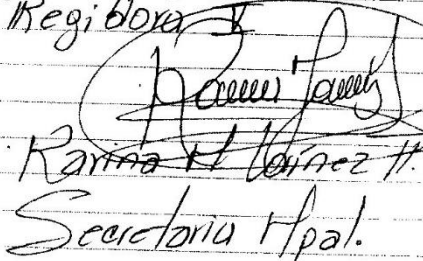 Regidora V
Karina H Laínez H.
Secretaria Mpal.